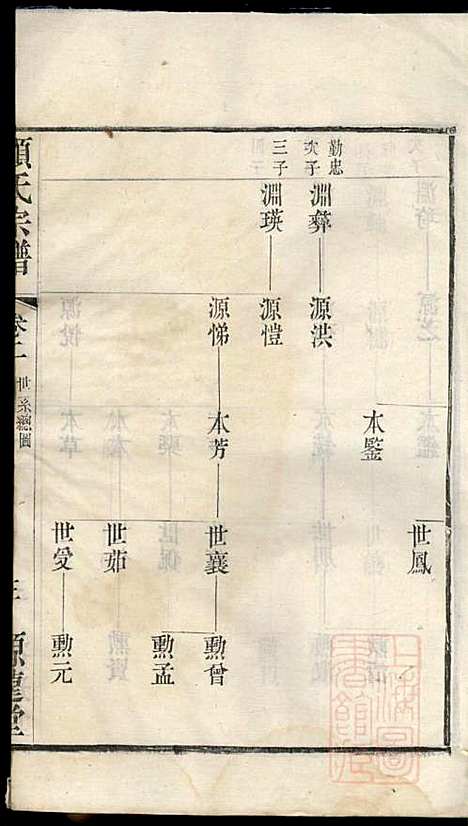 世鳳
本鑒
勤忠次子
淵彝
源洪
三子
淵瑛
源愷
源悌
本芳
世襄
勲曾
勲孟
世茹
世受
勲元
氏宗譜
卷二
世系總圖